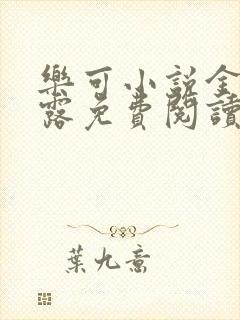 樂可小說全
露免費閱讀
葉九意